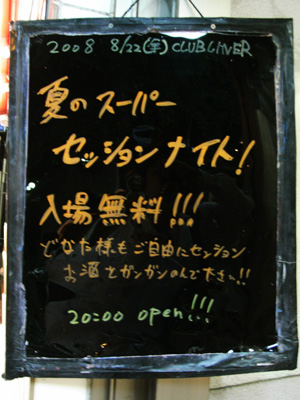 2008 8/22(金) CLUB LINER
夏のスーパー
セッションナイト!
入場無料!!!
どなた様もご自由にセッション
お酒をガンガンのんで下さい!!
20:00 open!!!